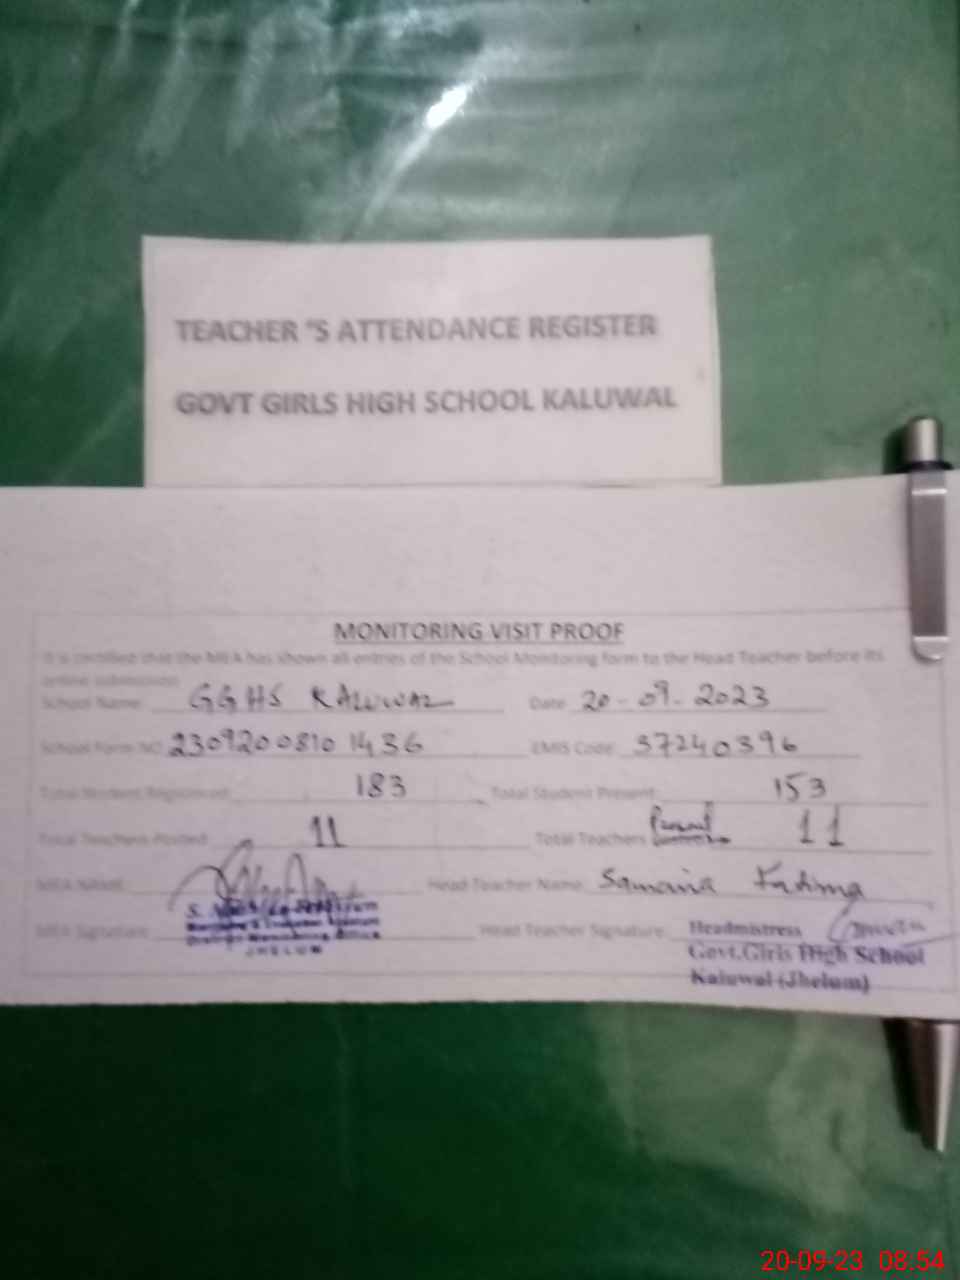 TEACHER "S ATTENDANCE REGISTER
GOVT GIRLS HIGH SCHOOL KALUWAL
MONITORING VISIT PROOF
It is certified that the MEA has shown all entries of the School Monitoring form to the Head Teacher before its
online submission
School Name: GGHS KALUWAL Date: 20-09-2023
School Form NO 2309200810 1436 EMIS Code: 37240396
Total Student Registered: 183 Total Student Present: 153
Total Teachers Posted: 11 Total Teachers Present 11
MEA NAME: Head Teacher Name: Samaria Fatima
MEA Signature: Head Teacher Signature: Headmistress
Monitoring Office Govt.Girls High School
JHELUM Kaluwal (Jhelum)
20-09-23 08:54